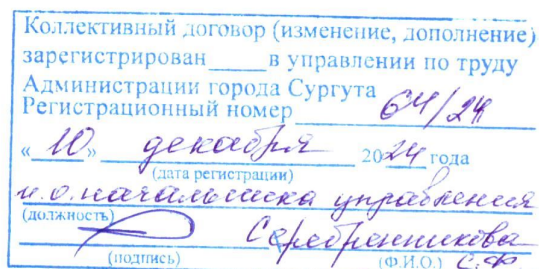 Коллективный договор (изменение, дополнение)
зарегистрирован_____в управлении по труду
Администрации города Сургута
Регистрационный номер 64/24
«10» декабря 2024 года
(дата регистрации)
и.о. начальника управления
(должность)
Серебренникова
(подпись) (Ф.И.О.) С.Ф.